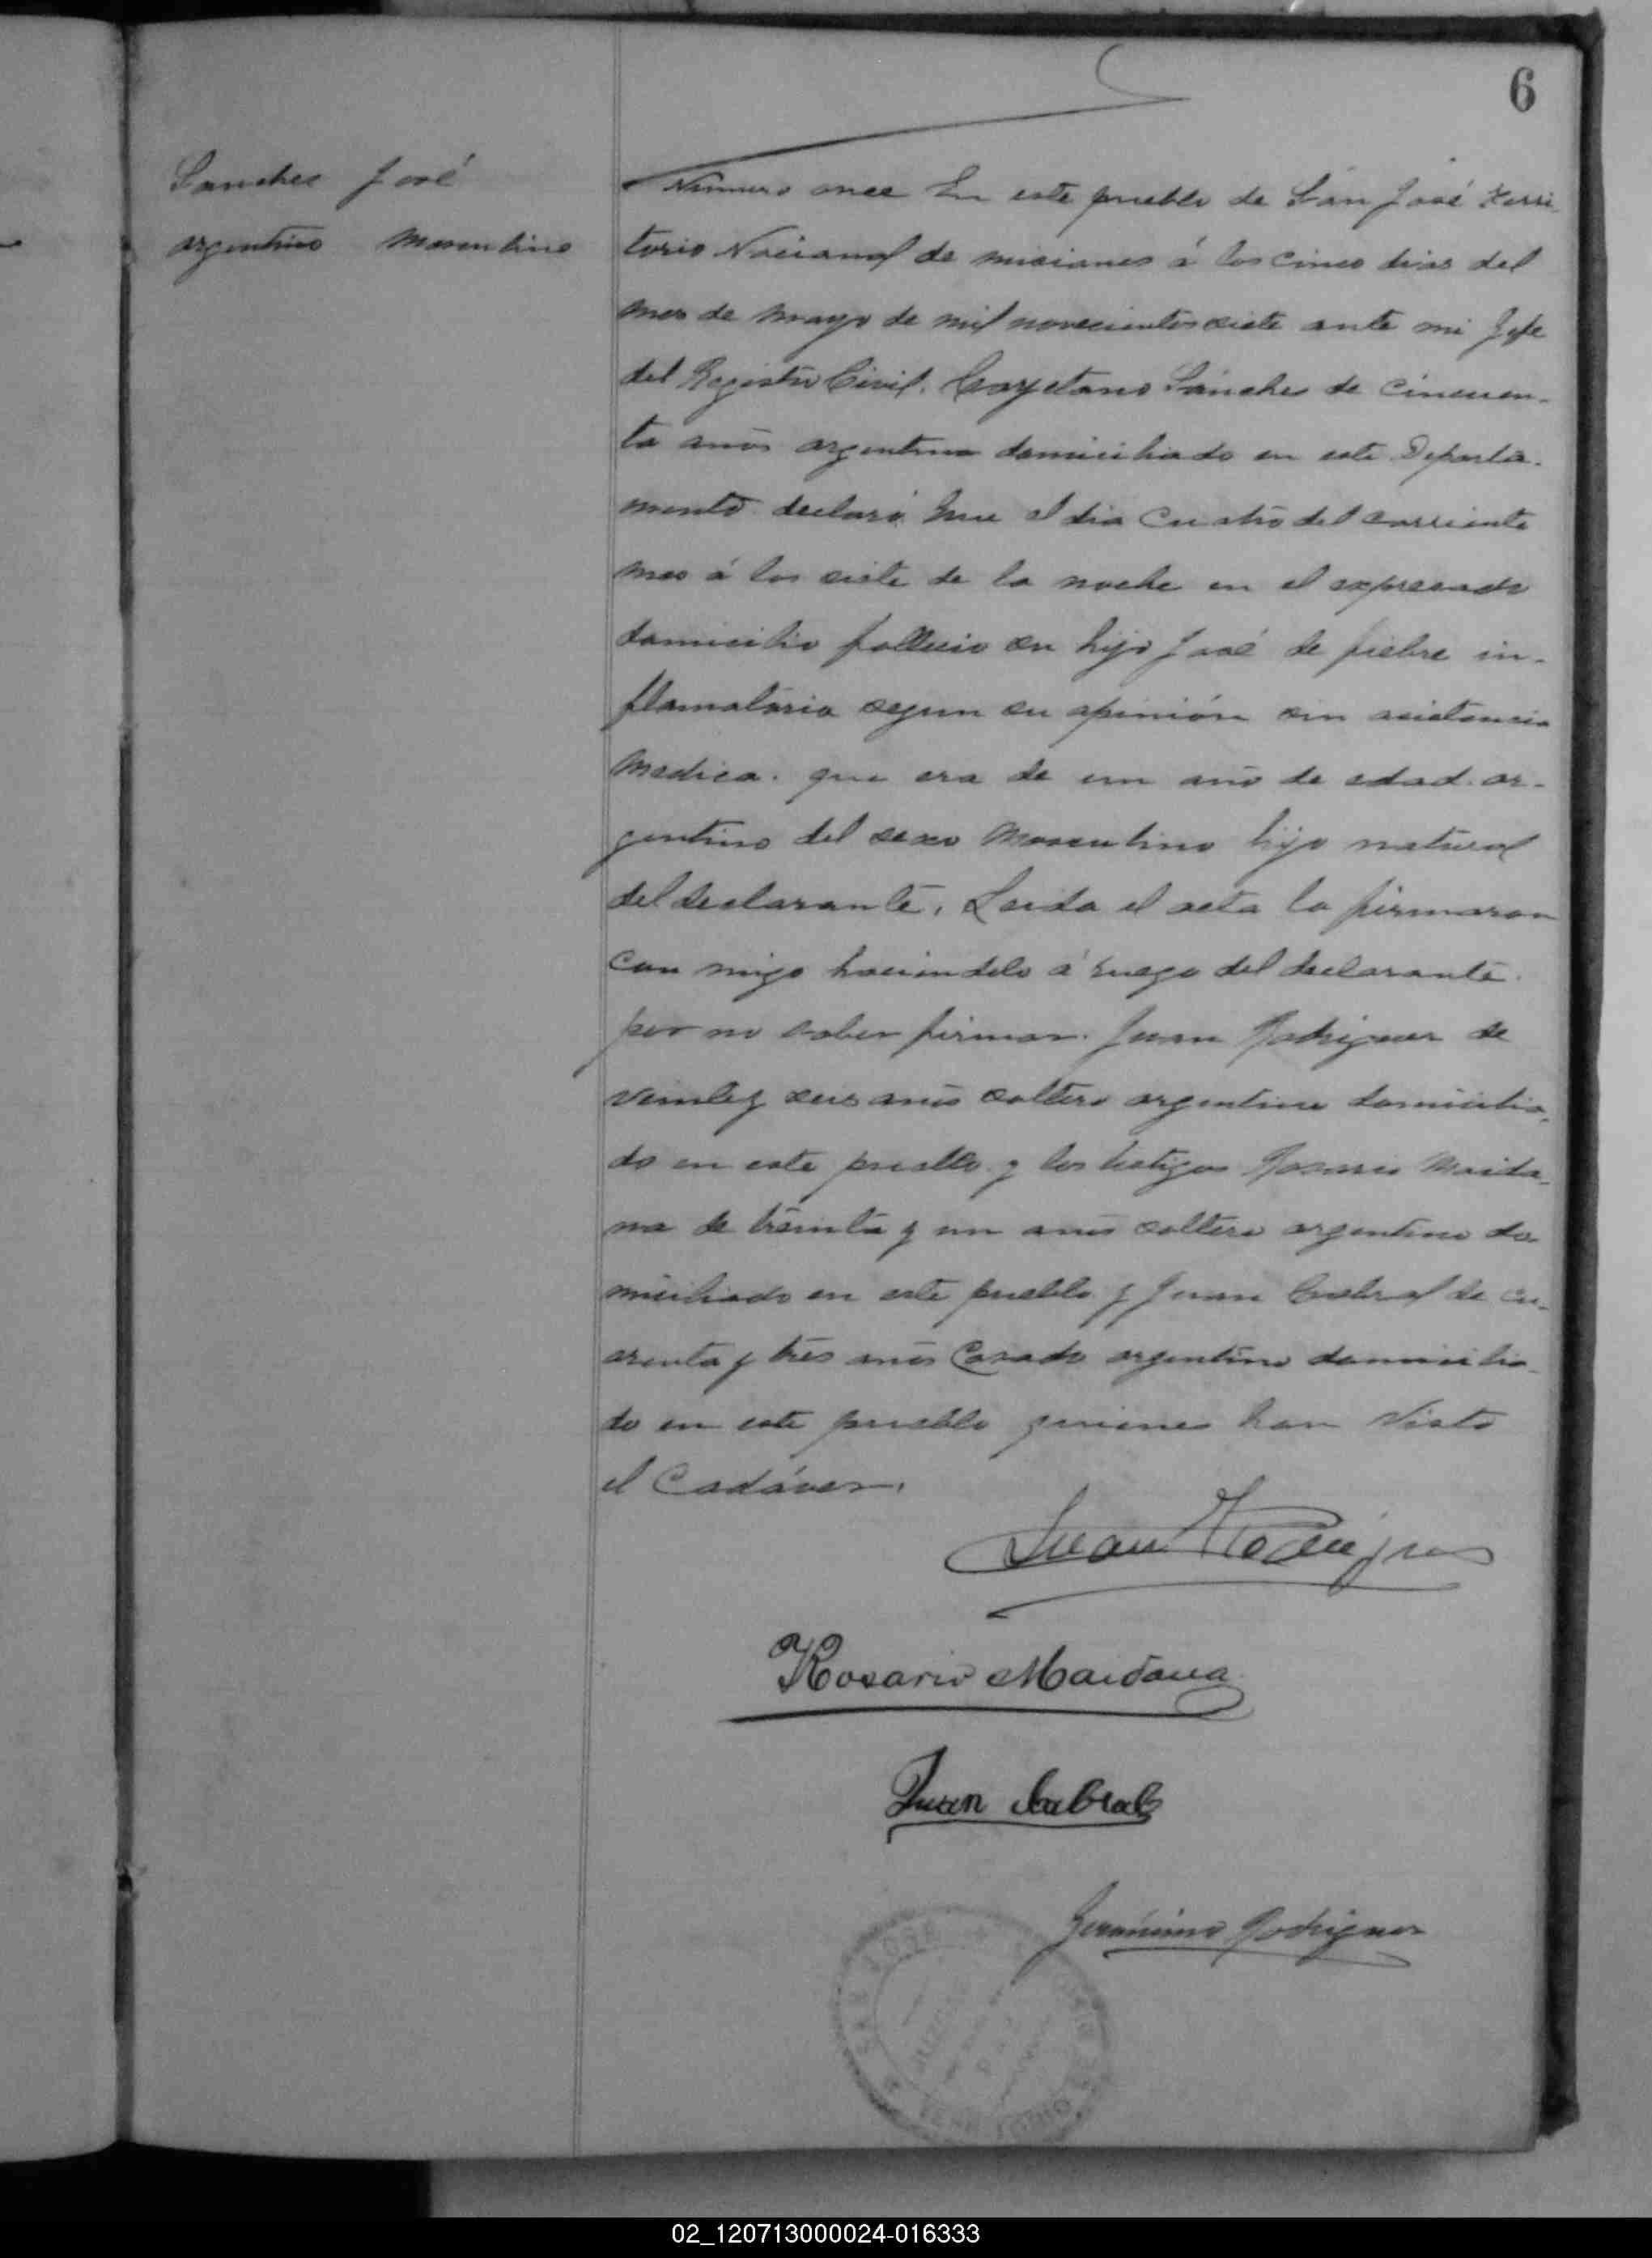 6
Sanches José
argentino Masculino
Número once En este pueblo de San José Terri
torio Nacional de misiones á los cinco dias del
mes de mayo de mil novecientos siete ante mi Jefe
del Registro Civil. Cayetano Sánches de cincuen-
ta anos argentino domiciliado en este Departa-
mento declaró: Que el dia cuatro del corriente
mes á las siete de la noche en el expresado
domicilio fallecio su hijo José de fiebre in-
flamatoria segun su opinión sin asistencia
Medica. que era de un ano de edad. ar-
gentino del sexo Masculino hijo natural
del declarante. Leida el acta la firmaron
con migo haciendolo á ruego del declarante.
por no saber firmar. Juan Rodriguez de
veinte y seis anos soltero argentino domicilia-
do en este pueblo y los testigos Rosario Maida-
na de treinta y un anos soltero argentino do-
miciliado en este pueblo y Juan Cabral de cu-
arenta y tres anos Casado argentino domicilia-
do en este pueblo quienes han visto
el Cadáver.
Juan Rodrigues
Rosario Maidana
Juan Cabral
Gerónimo Rodriguez
SAN JOSE
02_120713000024-016333